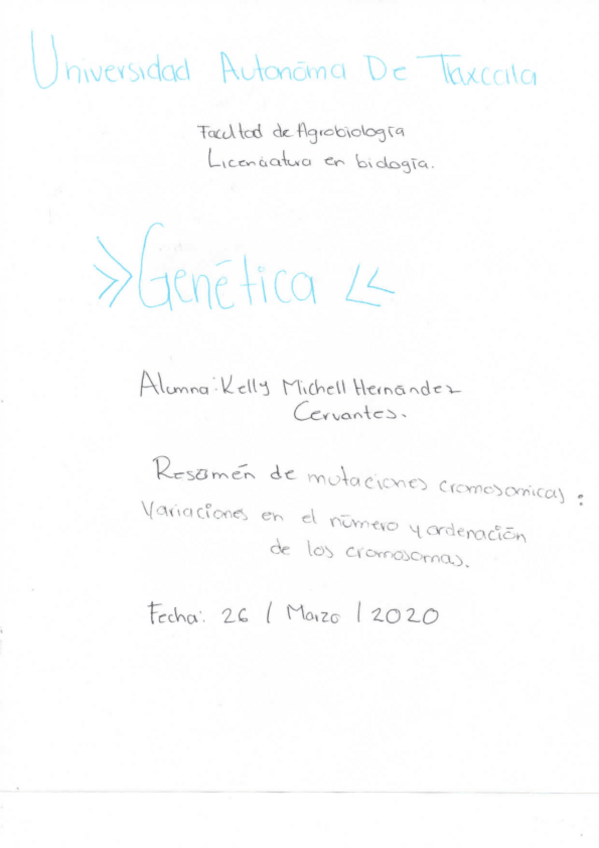 Universidad Autonóma De Tlaxcala
Facultad de Agrobiología
Licenciatura en biología.
>>Genética <<
Alumna: Kelly Michell Hernández
Cervantes.
Resúmén de mutaciones cromosomicas:
Variaciones en el número y ordenación
de los cromosomas.
Fecha: 26 / Marzo / 2020